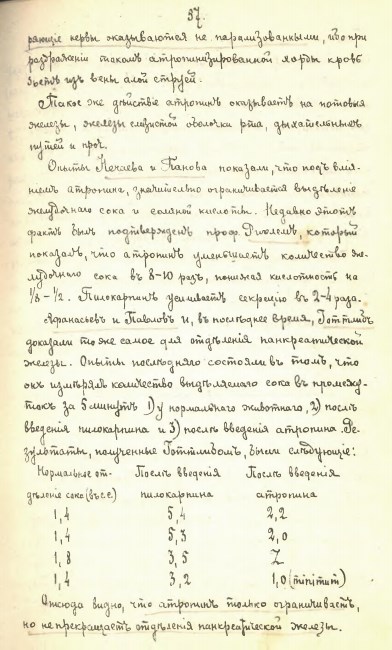 37.
ряющіе нервы оказываются не парализованными, ибо при
раздраженіи такой атропинизированной хорды кровь
бьетъ изъ вены алой струей.
Такое же дѣйствіе атропинъ оказываетъ на потовыя
железы, железы слизистой оболочки рта, дыхательныхъ
путей и проч.
Опыты Нечаева и Панова показали, что подъ влія-
ніемъ атропина, значительно ограничивается выдѣленіе
желудочнаго сока и соляной кислоты. Недавно этотъ
фактъ былъ подтвержденъ проф. Ригелемъ, который
показалъ, что атропинъ уменьшаетъ количество же-
лудочнаго сока въ 8-10 разъ, понижая кислотность на
1/3 – 1/2. Пилокарпинъ усиливаетъ секрецію въ 2-4 раза.
Афанасьевъ и Павловъ и, въ послѣднее время, Готтлибъ
доказали то же самое для отдѣленія панкреатической
железы. Опыты послѣдняго состояли въ томъ, что
онъ измѣрялъ количество выдѣляемаго сока въ промежу-
токъ за 5 минутъ 1) у нормальнаго животнаго, 2) послѣ
введенія пилокарпина и 3) послѣ введенія атропина. Ре-
зультаты, полученные Готтлибомъ, были слѣдующіе:
Нормальное от- Послѣ введенія Послѣ введенія
дѣленіе сока (въ с.с.) пилокарпина атропина
1,4 5,4 2,2
1,4 5,3 2,0
1,8 3,5 2
1,4 3,2 1,0 (minimum)
Отсюда видно, что атропинъ только ограничиваетъ,
но не прекращаетъ отдѣленія панкреатической железы.